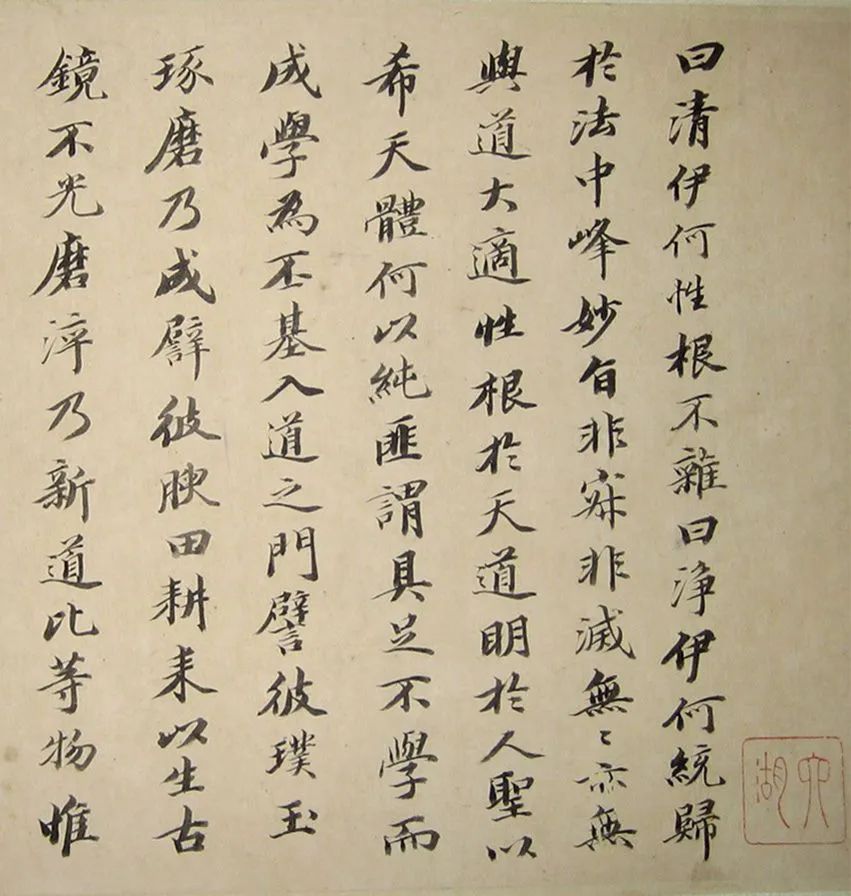 曰清伊何性根不雜曰浄伊何統歸
於法中峰妙旨非寂非滅無〻亦無
與道大適性根於天道明於人聖以
希天體何以純匪謂具足不學而
成學為丕基入道之門譬彼璞玉
琢磨乃成譬彼腴田耕耒以生古
鏡不光磨淬乃新道比等物惟